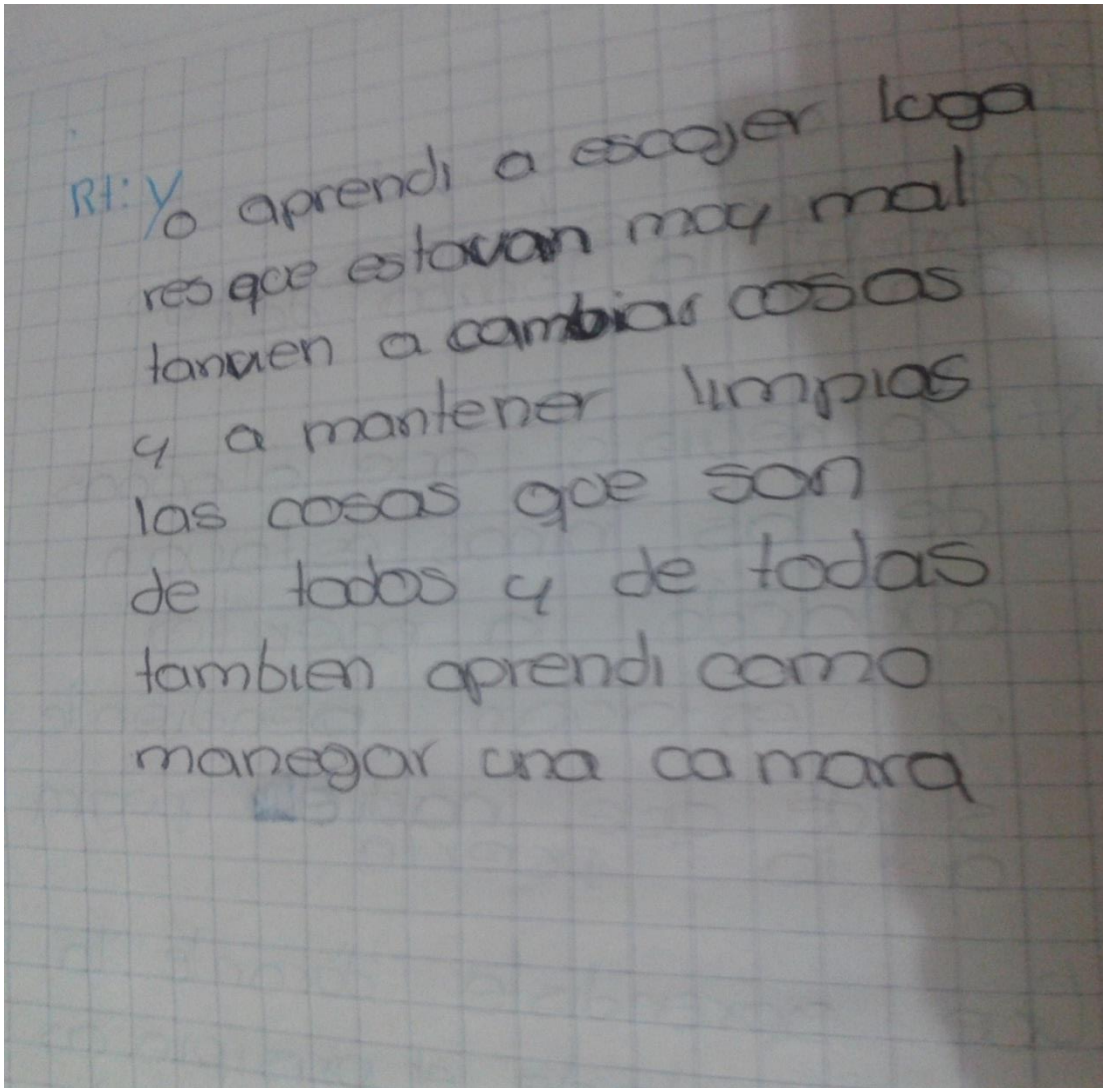 Rt: Yo aprendi a escojer luga
res que estavan muy mal
tanvien a cambiar cosas
y a mantener limpias
las cosas que son
de todos y de todas
tambien aprendi como
manegar una ca mara